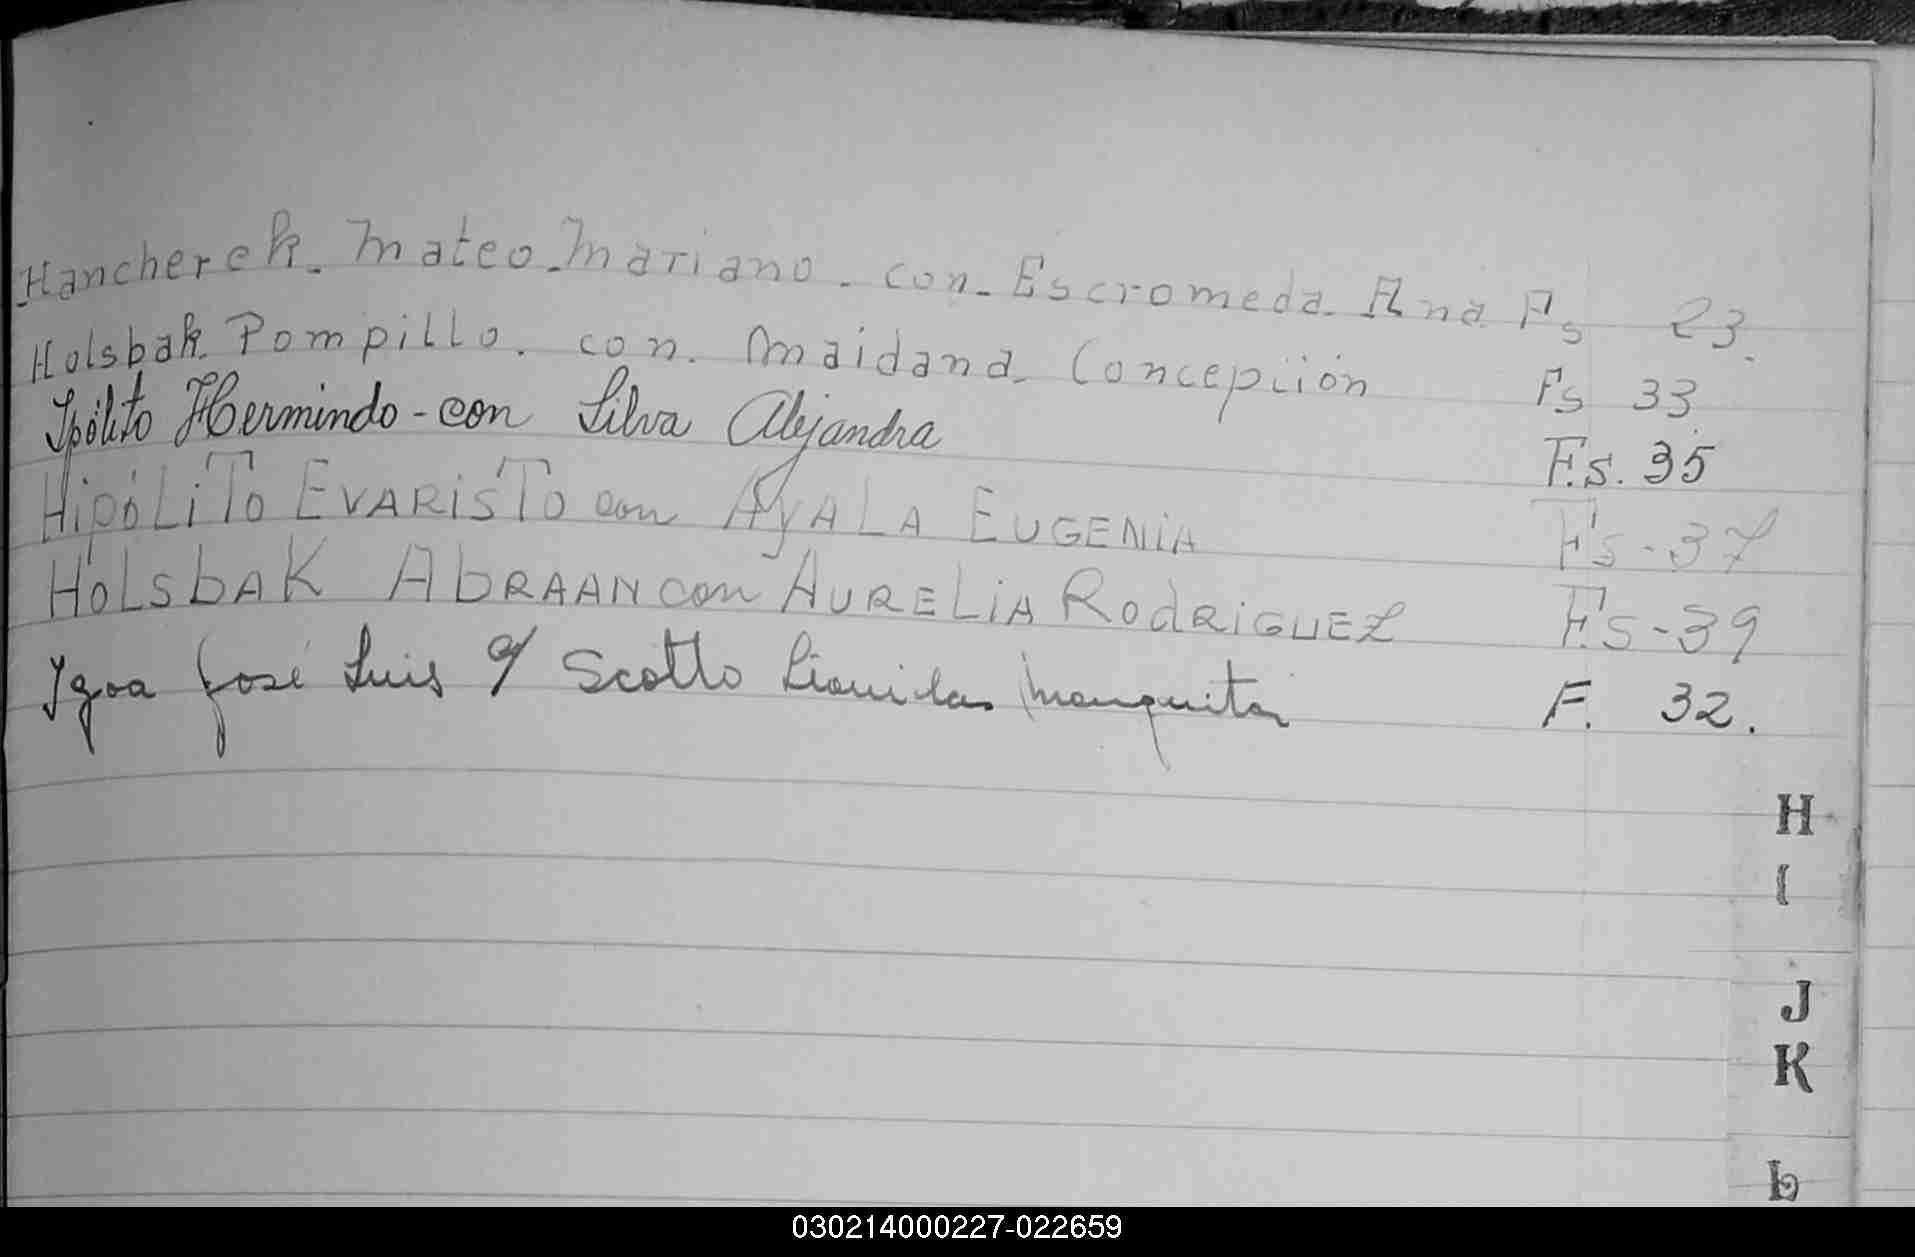 Hancherek. Mateo. Mariano. con. Escromeda. Ana Fs 23.
Holsbak. Pompillo. con. Maidana. Concepción Fs 33
Ipólito Hermindo - con Silva Alejandra F.s. 35
HipóLiTo EVARisTo con AyALA EUGENiA Fs - 37
HoLsbAK AbRAAN con AURELiA RodRiGUEZ F.s - 39
Igoa José Luis c/ Scotto F. 32.
H
I
J
K
L
030214000227-022659